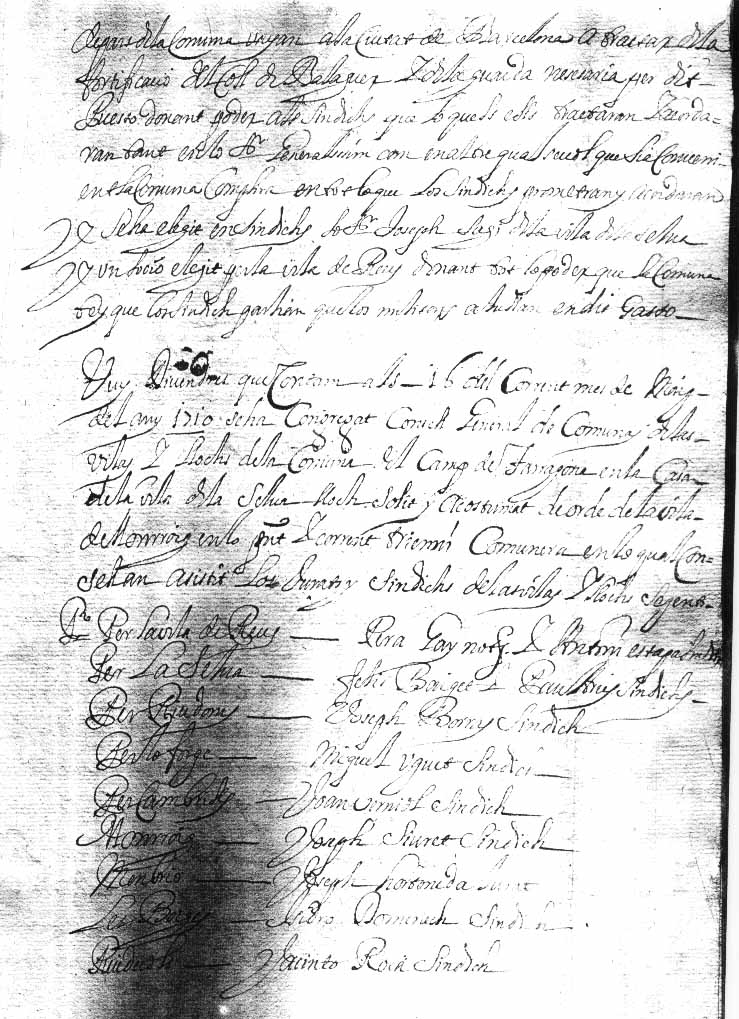 de part de la Comuna vayan a la Ciutat de Barcelona a tractar de la
fortificacio del Coll de Balaguer y de la guarda necesaria per dit
Puesto donant poder als Sindichs que lo quels ells tractaran y acorda=
ran tant en lo Sr. Generalissim com en altre qualsevol que sia convenni
ent la Comuna Complira en tot lo que los Sindichs prometran y acordaran
y Se ha elegit en Sindichs lo Sr. Joseph de la vila de la Selva
y un socio elegit per la vila de Reus donant tot lo poder que la Comuna
te y que los Sindich que los en dit Gasto
Vuy Divendres que Contam als 16 del Corrent mes de Maig
del any 1710 se ha Congregat Consell General de Comuna de las
vilas y llochs de la Comuna del Camp de Tarragona en la Casa
de la vila de la Selva lloch solit y acostumat de orde de la vila
de Monroig en lo pnt y corrent trienni Comunera en lo qual Con=
sell an asistit Los Jurats y Sindichs de las vilas y llochs seguents
Po Per la vila de Reus — Pera Gay notr. y Antoni
Per La Selva — Felis Baiget y Pau Sindichs
Per Riudoms — Joseph Borras Sindich
Per lo forge — Miquel uguet Sindich
Per Cambrils — Joan Sindich
Monroig — Joseph Siuret Sindich
Monbrio — Joseph fortoneda Jurat
Les Borges — Isidro Domenech Sindich
Riudecols — Jacinto Roch Sindich